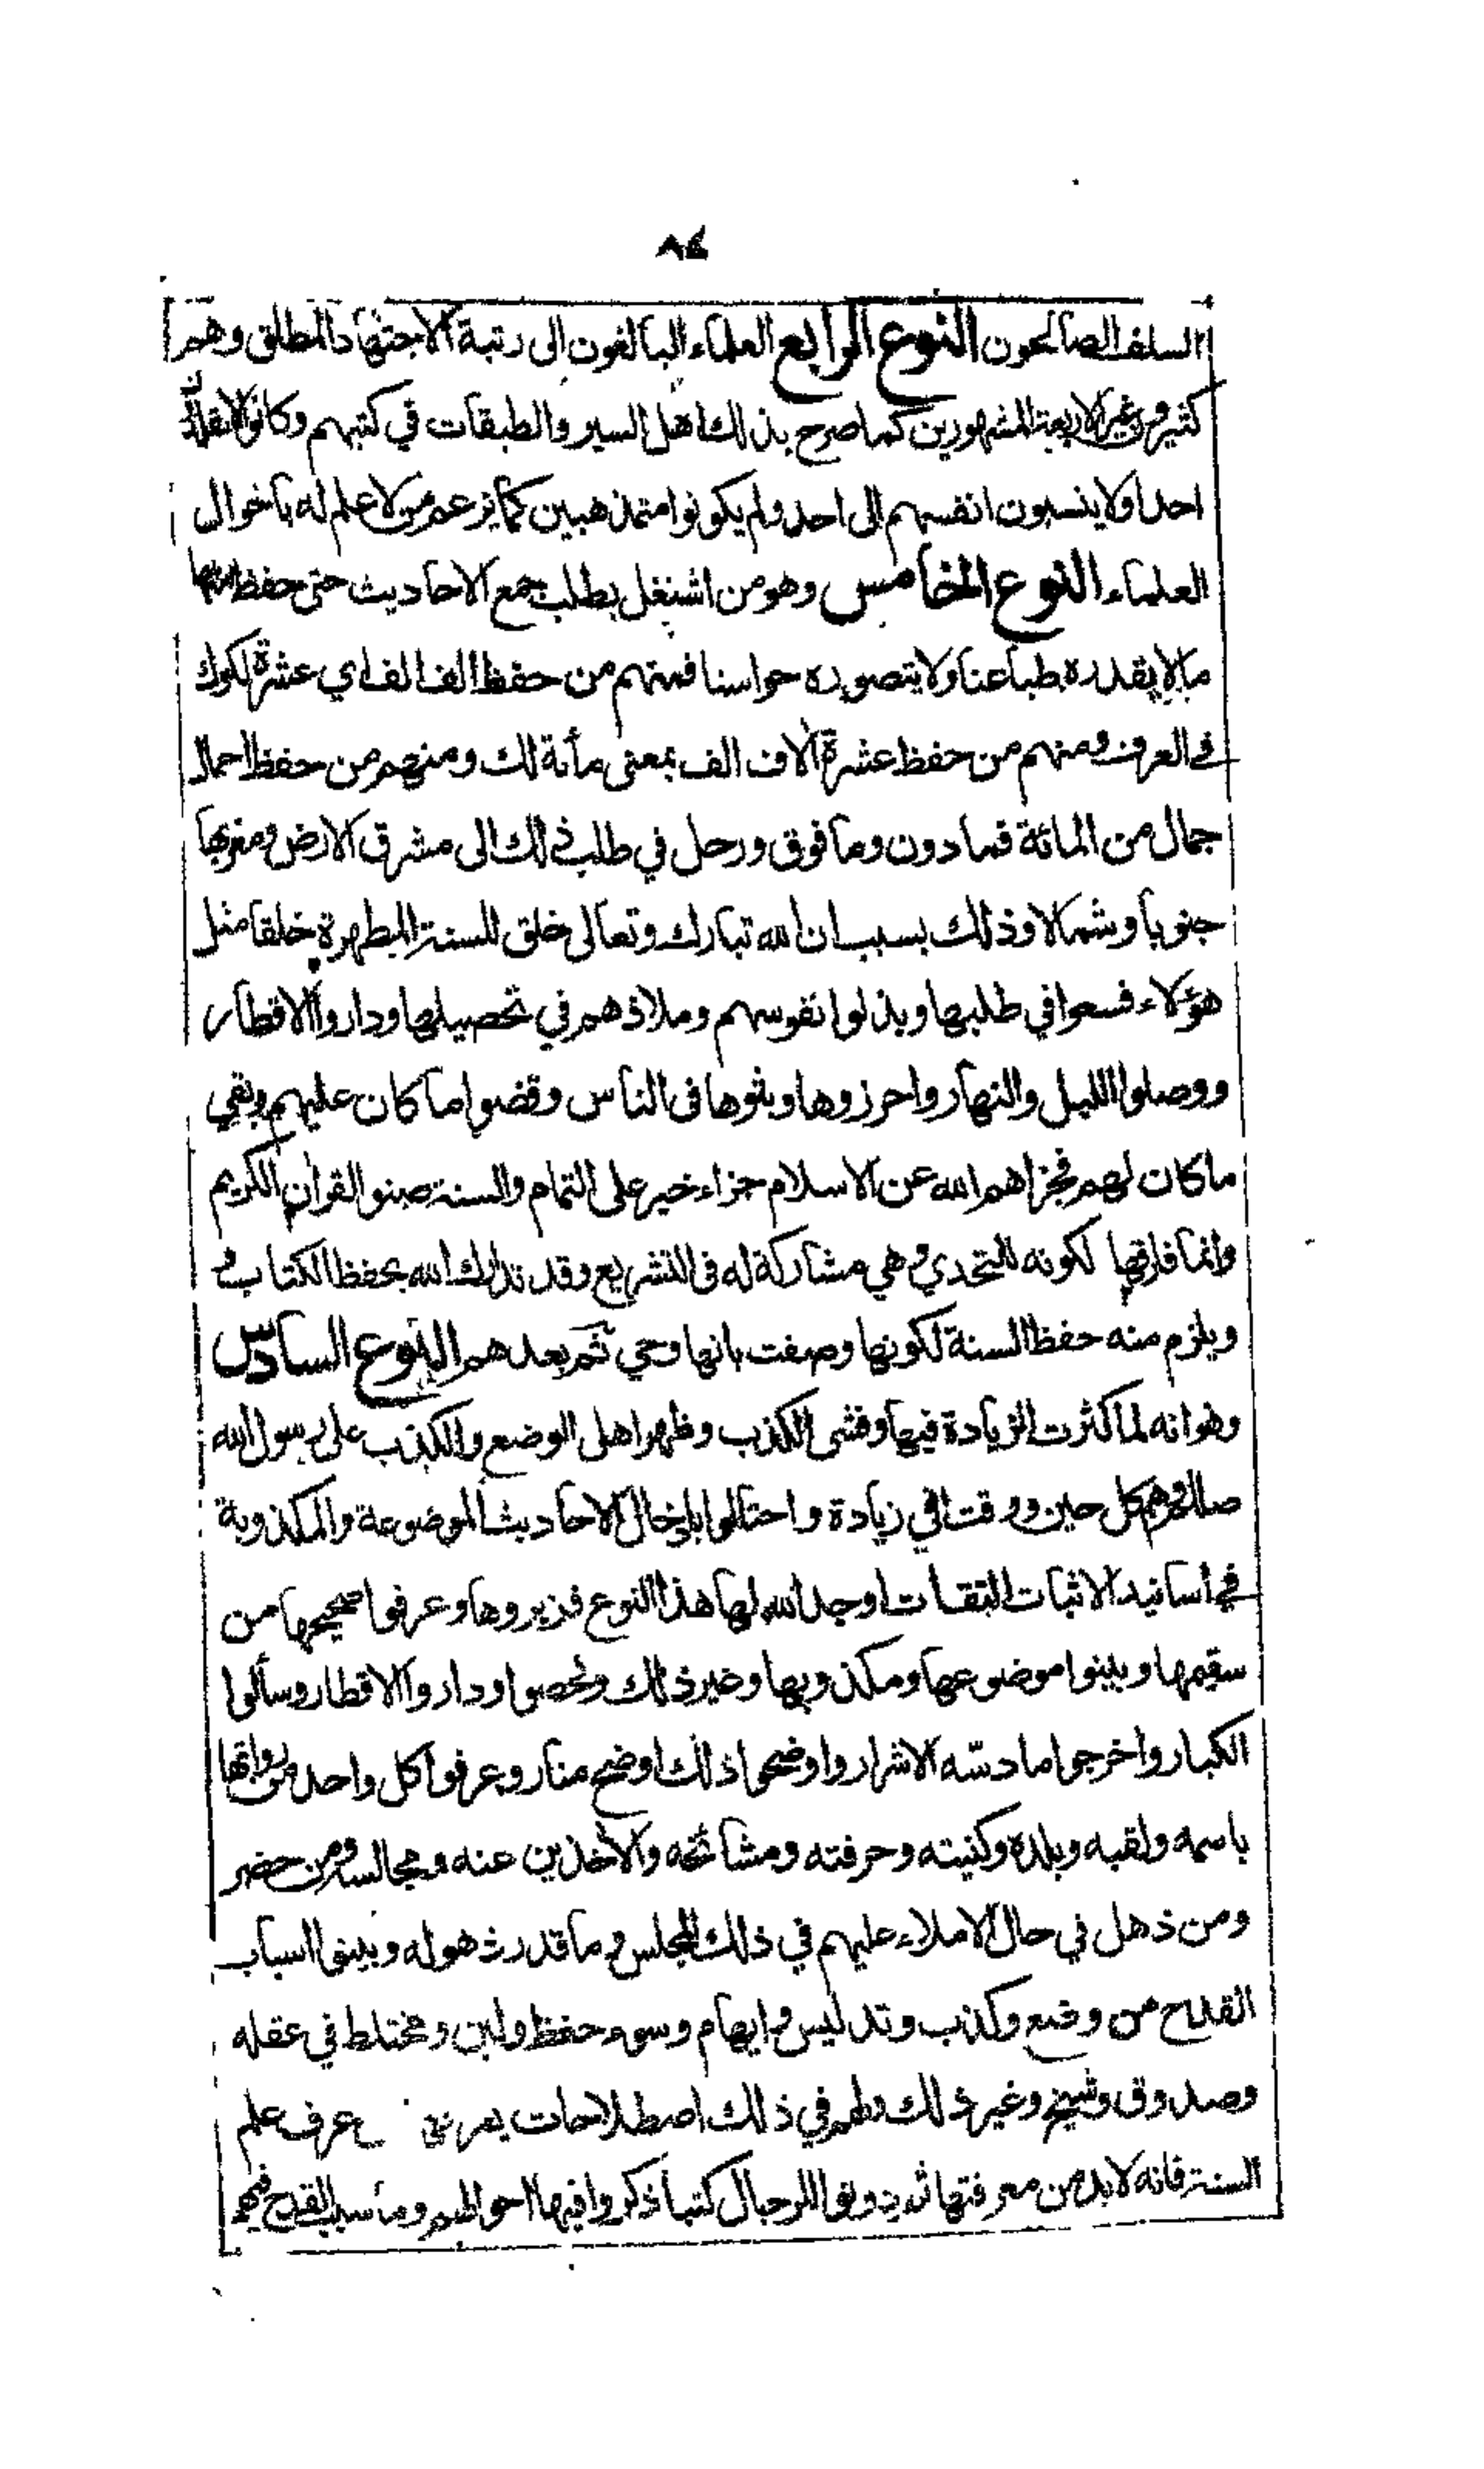 ٨٤
السلف الصالحون النوع الرابع العلماء البالغون الى رتبة الاجتهاد المطلق وهم
كثيرون غير الاربعة المشهورين كما صرح بذلك اهل السير والطبقات في كتبهم وكانوا لا يقلدون
احدا ولا ينسبون انفسهم الى احد ولم يكونوا متمذهبين كما يزعم من لا علم له باحوال
العلماء النوع الخامس وهو من اشتغل بطلب جمع الاحاديث حتى حفظ منها
ما لا يقدره طباعنا ولا يتصوره حواسنا فمنهم من حفظ الف الف اي عشرة لكوك
في العرف ومنهم من حفظ عشرة آلاف الف بمعنى مأئة لك ومنهم من حفظ احمال
جمال من المائة فما دون وما فوق ورحل في طلب ذلك الى مشرق الارض ومغربها
جنوبا وشمالا وذلك بسبب ان الله تبارك وتعالى خلق للسنة المطهرة خلقا مثل
هؤلاء فسعوا في طلبها وبذلوا نفوسهم وملاذهم في تحصيلها وداروا الاقطار
ووصلوا الليل والنهار واحرزوها وبثوها فى الناس وقضوا ما كان عليهم وبقي
ما كان لهم فجزاهم الله عن الاسلام جزاء خير على التمام والسنة صنو القرآن الكريم
وانما فارقها لكونه للتحدي وهي مشاركة له فى التشريع وقد تدارك الله بحفظ الكتاب
ويلزم منه حفظ السنة لكونها وصفت بانها وحي ثم بعدهم النوع السادس
وهو انه لما كثرت الزيادة فيها وفشى الكذب وظهر اهل الوضع والكذب على رسول الله
صللم وهم كل حين ووقت في زيادة واحتالوا بادخال الاحاديث الموضوعة والمكذوبة
في اسانيد الاثبات الثقات اوجد الله لها هذا النوع فزبروها وعرفوا صحيحها من
سقيمها وبينوا موضوعها ومكذوبها وغير ذلك وفحصوا وداروا الاقطار وسألوا
الكبار واخرجوا ما دسّه الاشرار واوضحوا ذلك اوضح منار وعرفوا كل واحد من رواتها
باسمه ولقبه وبلده وكنيته وحرفته ومشائخه والآخذين عنه ومجالسه ومن حضر
ومن ذهل في حال الاملاء عليهم في ذلك المجلس وما قدر ذهوله وبينوا اسباب
القدح من وضع وكذب وتدليس وايهام وسوء حفظ ولين ومختلط في عقله
وصدوق وشيخ وغير ذلك ولهم في ذلك اصطلاحات عرف علم
السنة فانه لابد من معرفتها ثم دونوا للرجال كتبا ذكروا فيها احوالهم وما سبب القدح فيهم